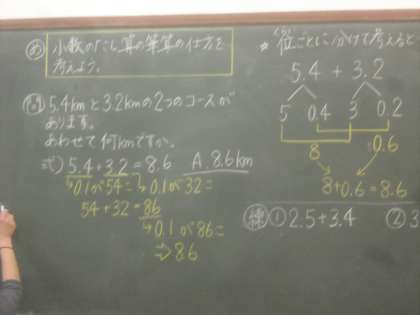 め 小数のたし算の筆算の仕方を
考えよう。
問 5.4kmと3.2kmの2つのコースが
あります。
あわせて何kmですか。
式) 5.4+3.2=8.6 A. 8.6km
↳0.1が54= ↳0.1が32=
54+32=86
↳0.1が86=
⇒8.6
* 位ごとに分けて考えると
5.4+3.2
5 0.4 3 0.2
8 0.6
8+0.6=8.6
練 ① 2.5+3.4 ② 3